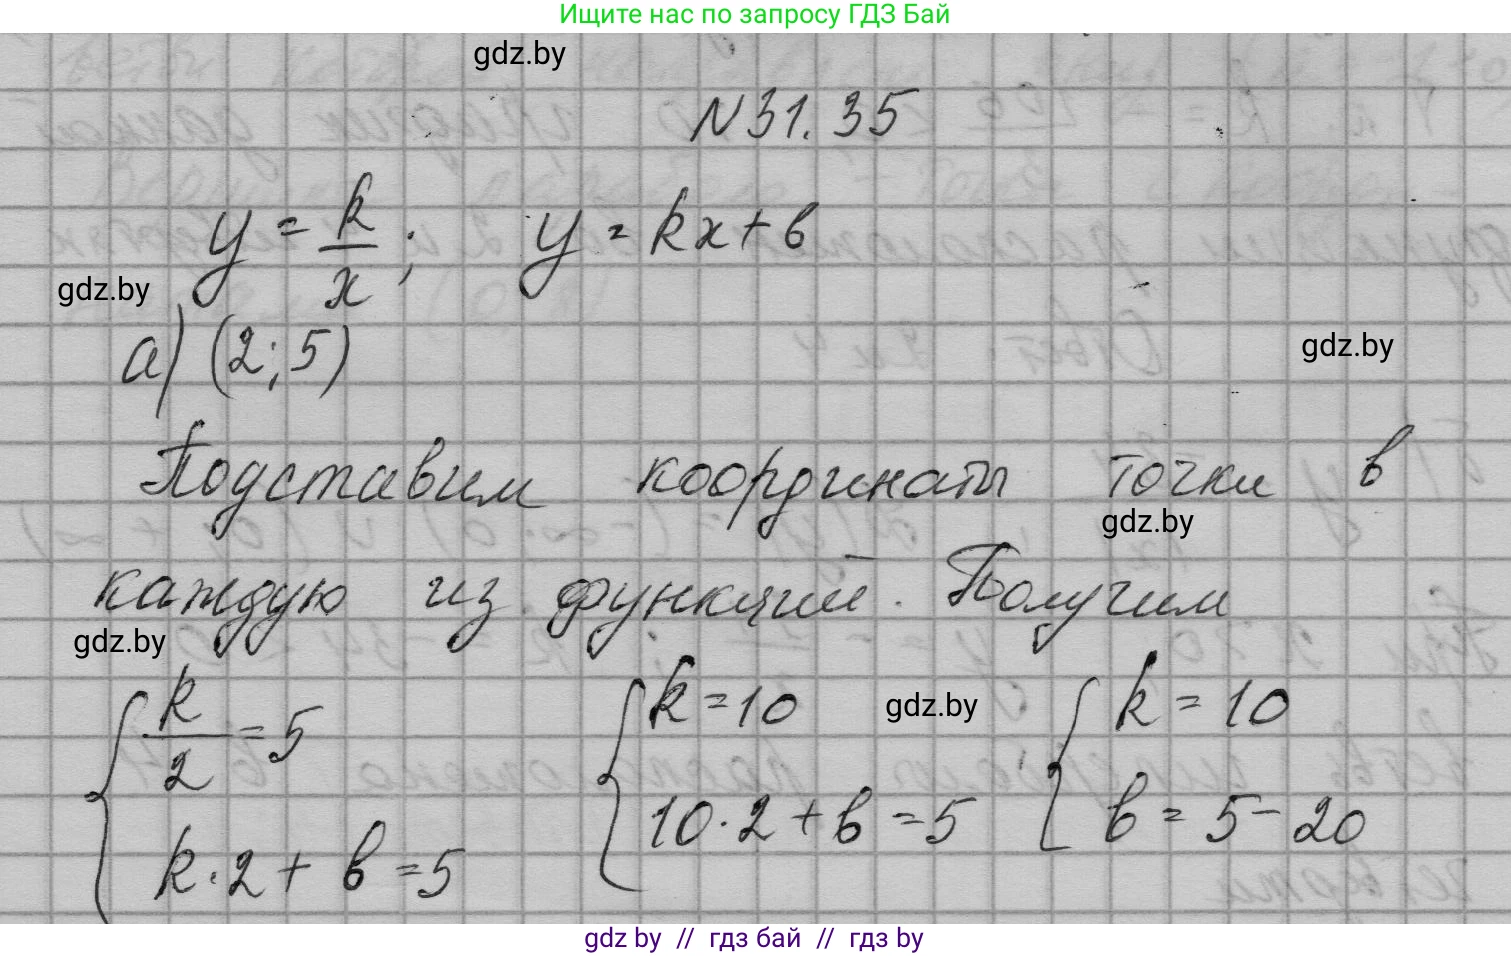 Ищите нас по запросу ГДЗ Бай
gdz.by
N31.35
y = k/x ; y = kx + в
gdz.by
а) (2; 5)
gdz.by
Подставим координаты точки в
gdz.by
каждую из функций. Получим
gdz.by
{ k/2 = 5 { k = 10 gdz.by { k = 10
k · 2 + в = 5 10 · 2 + в = 5 в = 5 - 20
gdz by // гдз бай // гдз by